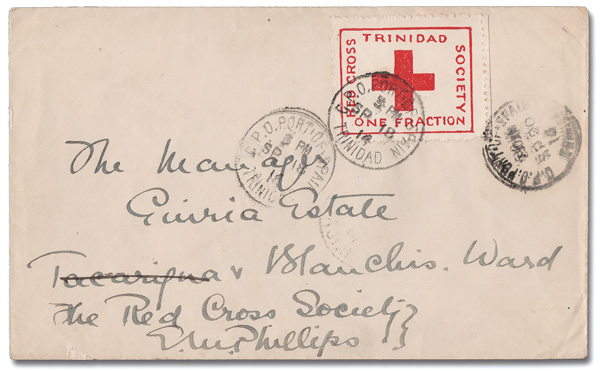 TRINIDAD
RED CROSS
SOCIETY
ONE FRACTION
G.P.O. PORT-OF-SPAIN
3 PM
SP 18
14
TRINIDAD
G.P.O. PORT-OF-SPAIN
3 PM
SP 18
14
TRINIDAD
The Manager
Guiria Estate
Tacarigua & Blanchis. Ward
The Red Cross Society
E. M. Phillips